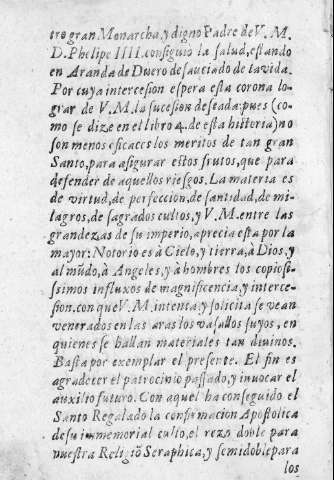 tro gran Monarcha, y digno Padre de V. M.
D. Phelipe IIII. consiguiò la salud, estando
en Aranda de Duero desauciado de la vida.
Por cuya intercesion espera esta corona lo-
grar de V. M. la sucesion deseada: pues (co-
mo se dize en el libro 4. de esta historia) no
son menos eficaces los meritos de tan gran
Santo, para asigurar estos frutos, que para
defender de aquellos riesgos. La materia es
de virtud, de perfeccion, de santidad, de mi-
lagros, de sagrados cultos, y V. M. entre las
grandezas de su imperio, aprecia esta por la
mayor: Notorio es à Cielo, y tierra, à Dios, y
al mũdo, à Angeles, y à hombres los copiosi-
ssimos influxos de magnificencia, y interce-
sion, con que V. M. intenta, y solicita se vean
venerados en las aras los vasallos suyos, en
quienes se hallan materiales tan divinos.
Basta por exemplar el presente. El fin es
agradecer el patrocinio passado, y invocar el
auxilio futuro. Con aquel ha conseguido el
Santo Regalado la confirmacion Apostolica
de su inmemorial culto, el rezo doble para
nuestra Religiõ Seraphica, y semidoble para
los